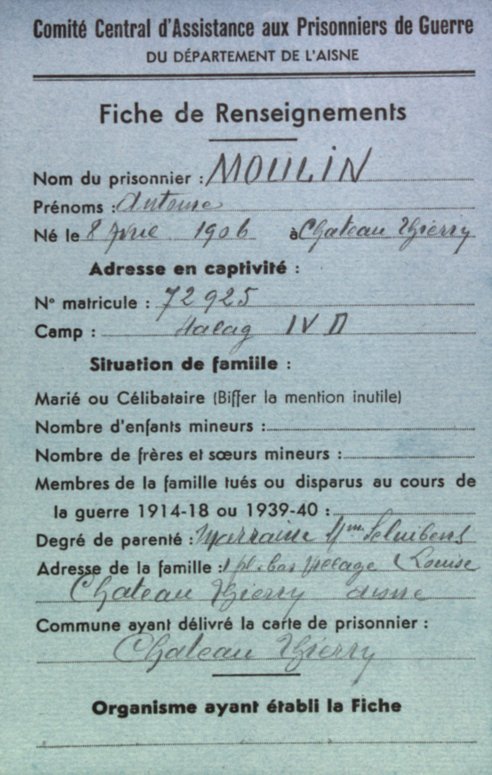 Comité Central d'Assistance aux Prisonniers de Guerre
DU DÉPARTEMENT DE L'AISNE
Fiche de Renseignements
Nom du prisonnier : MOULIN
Prénoms : Antoine
Né le 8 1906 à Chateau Thierry
Adresse en captivité :
N° matricule : 72925
Camp : Stalag IV D
Situation de famiille :
Marié ou Célibataire (Biffer la mention inutile)
Nombre d'enfants mineurs :
Nombre de frères et sœurs mineurs :
Membres de la famille tués ou disparus au cours de
la guerre 1914-18 ou 1939-40 :
Degré de parenté : Marraine Mme
Adresse de la famille : Village Louise
Chateau Thierry aisne
Commune ayant délivré la carte de prisonnier :
Chateau Thierry
Organisme ayant établi la Fiche